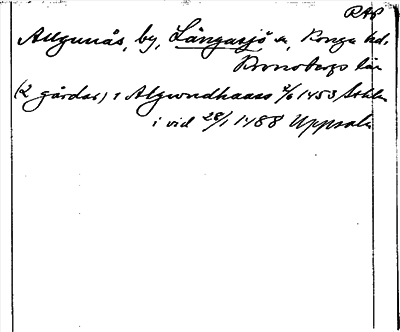 RAP
Allgunås, by, Långasjö sn, Konga hd,
Kronobergs län
(2 gårdar) i Algwndhaaas 2/6 1453 Sthlm
i vid 28/1 1488 Uppsala